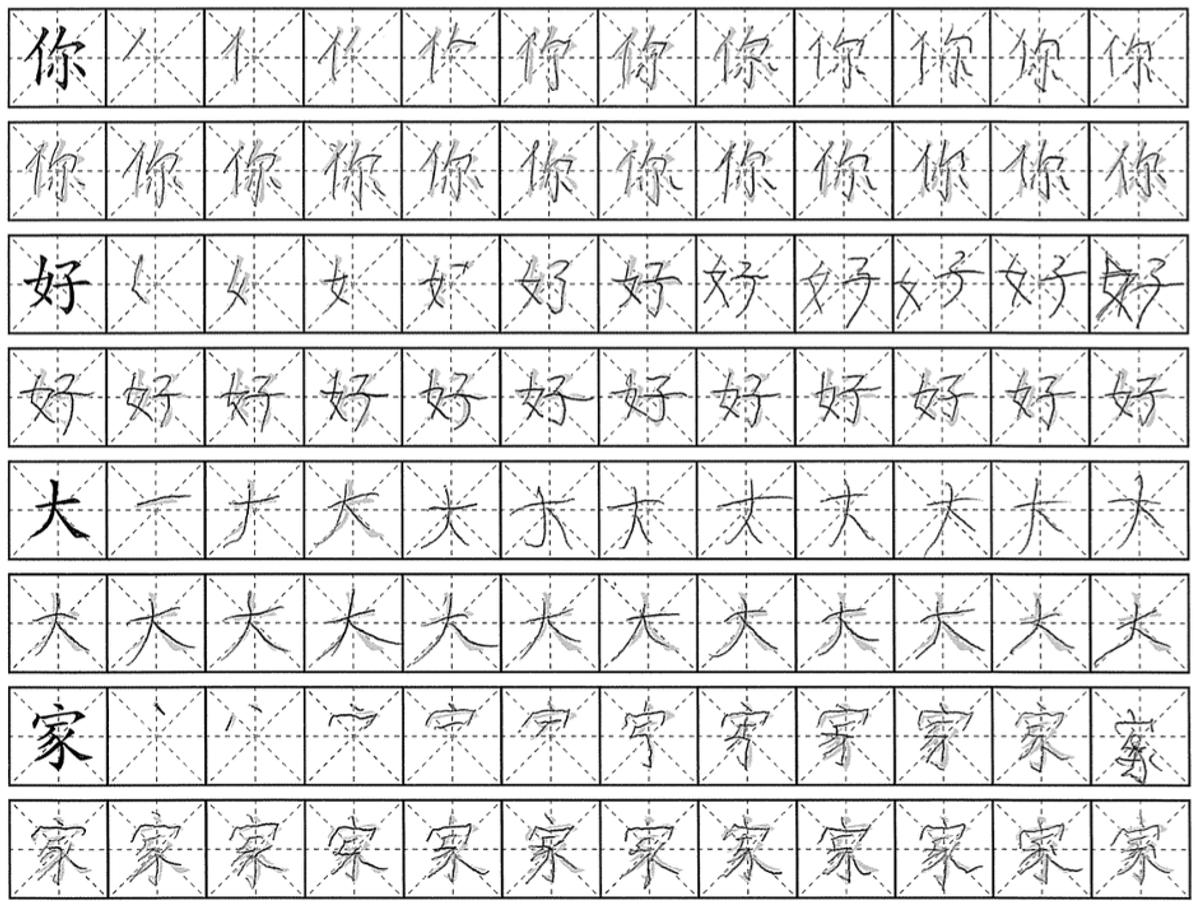 你 丿 亻 你 你 你 你 你
你 你 你 你 你 你 你 你 你 你 你 你
好 女 好 好 好 好 好 好
好 好 好 好 好 好 好 好 好 好 好 好
大 一 ナ 大 大 大 大 大 大 大 大 大
大 大 大 大 大 大 大 大 大 大 大 大
家 丶 宀 家 家
家 家 家 家 家 家 家 家 家 家 家 家